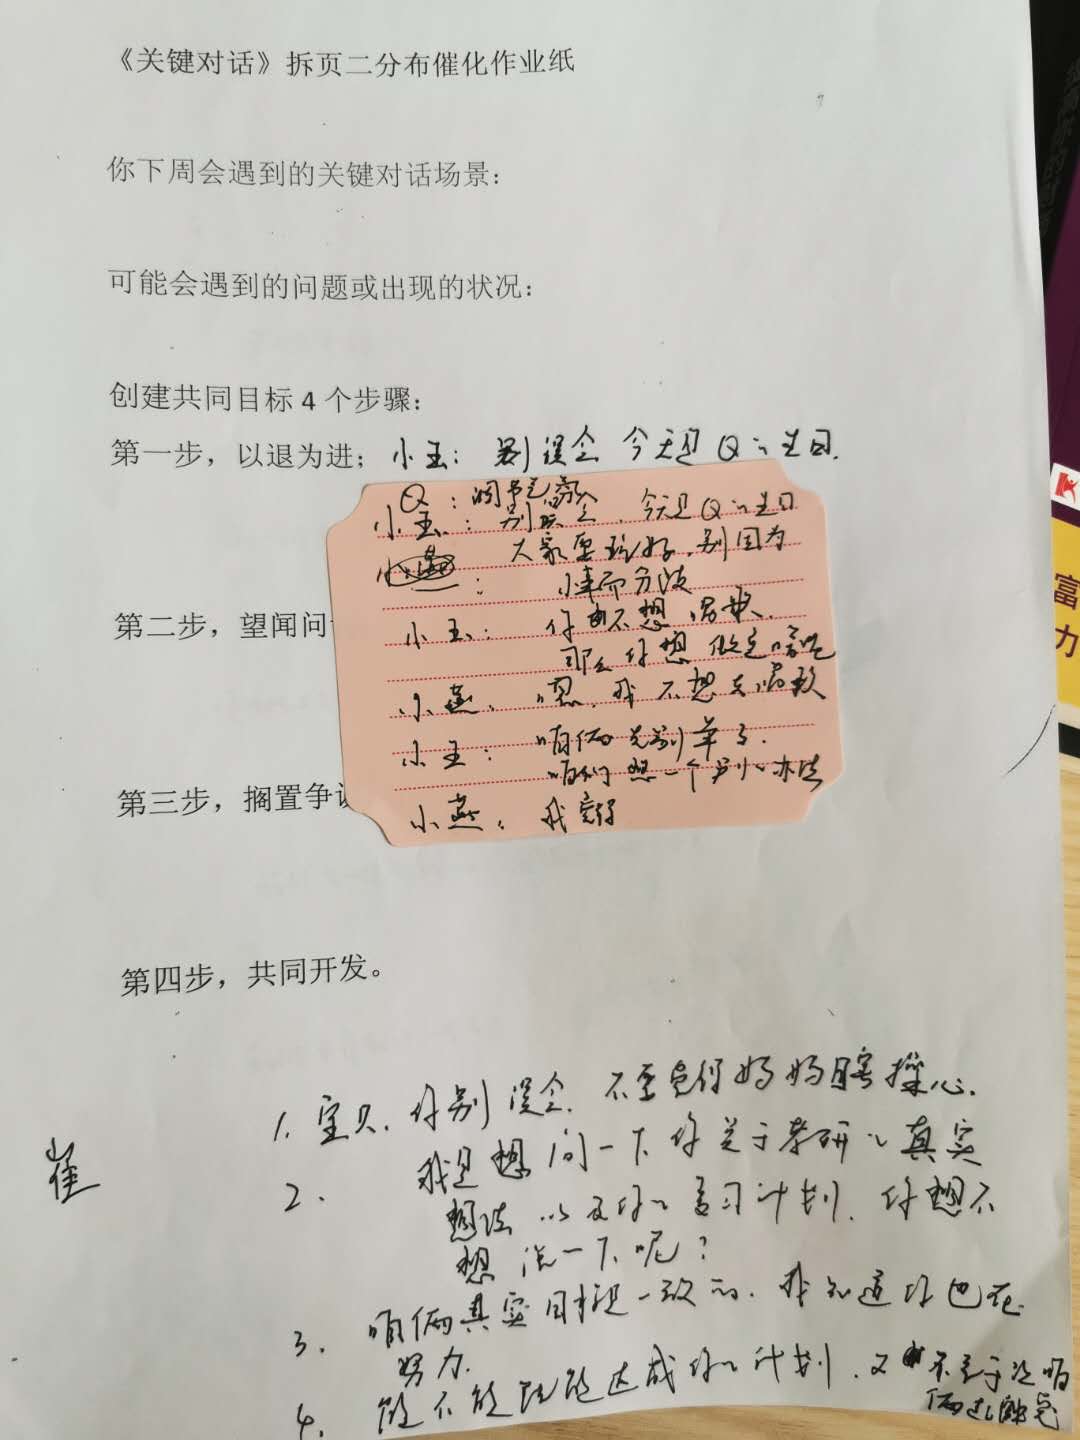 《关键对话》拆页二分布催化作业纸
你下周会遇到的关键对话场景：
可能会遇到的问题或出现的状况：
创建共同目标4个步骤：
第一步，以退为进；小玉：别误会 今天是Q的生日.
Q：调节气氛
小玉：别误会，今天是Q的生日
大家要玩好，别因为
小事而分歧
第二步，望闻问
小玉：你也不想唱歌.
那么你想做点啥呢
小燕：嗯，我不想去唱歌
小玉：咱俩先别争了.
咱们想一个别的办法
第三步，搁置争议
小燕：我觉得
第四步，共同开发。
1. 宝贝，你别误会，不要觉得妈妈瞎操心.
2. 我是想问一下你关于考研的真实
想法以及你的复习计划，你想不
想说一下呢？
3. 咱俩真实目标是一致的，我知道你也在
努力.
4. 能不能既能达成你的计划，又不至于让咱
俩
崔
富
力